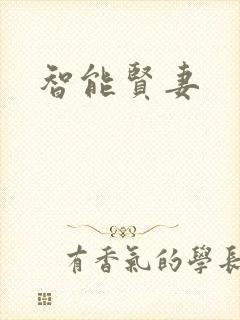 智能賢妻
有香氣的學長